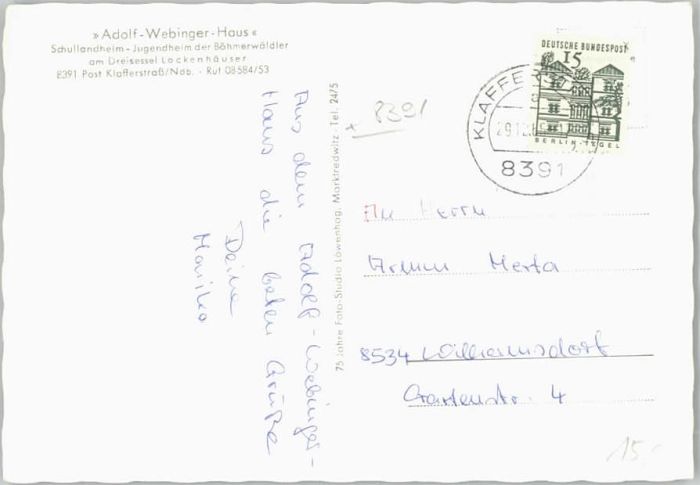 »Adolf-Webinger-Haus«
Schullandheim - Jugendheim der Böhmerwäldler
am Dreisessel Lackenhäuser
8391 Post Klafferstraß/Ndb. - Ruf 08584/53
Aus dem Adolf-Webinger-
Haus die besten Grüße
Deine
Monika
75 Jahre Foto-Studio Löwenhag, Marktredwitz - Tel. 2475
8391
DEUTSCHE BUNDESPOST
15
BERLIN-TEGEL
KLAFFE
a
29.12.
8391
An Herrn
Armin Herta
8534 Wilhermsdorf
Gartenstr. 4
15,-